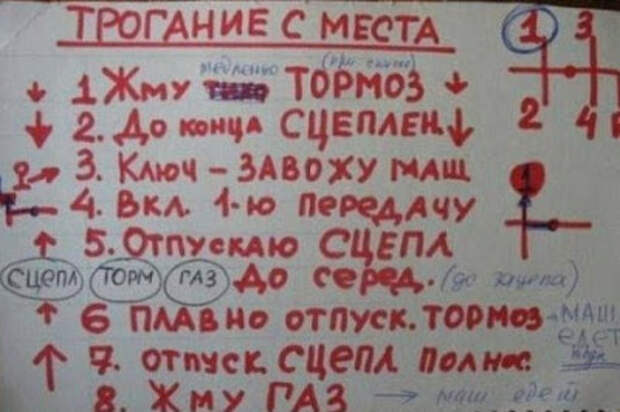 ТРОГАНИЕ С МЕСТА
1 3
2 4
медленно
↓ 1 Жму ТОРМОЗ ↓
↓ 2. До конца СЦЕПЛЕН. ↓
3. Ключ – ЗАВОЖУ МАШ
4. Вкл. 1-ю ПЕРЕДАЧУ
1
↑ 5. Отпускаю СЦЕПЛ
СЦЕПЛ ТОРМ ГАЗ До серед. (до зацепа)
↑ 6 ПЛАВНО отпуск. ТОРМОЗ → МАШ
едет
↑ 7. отпуск. СЦЕПЛ полнос.
8. Жму ГАЗ → маш едет